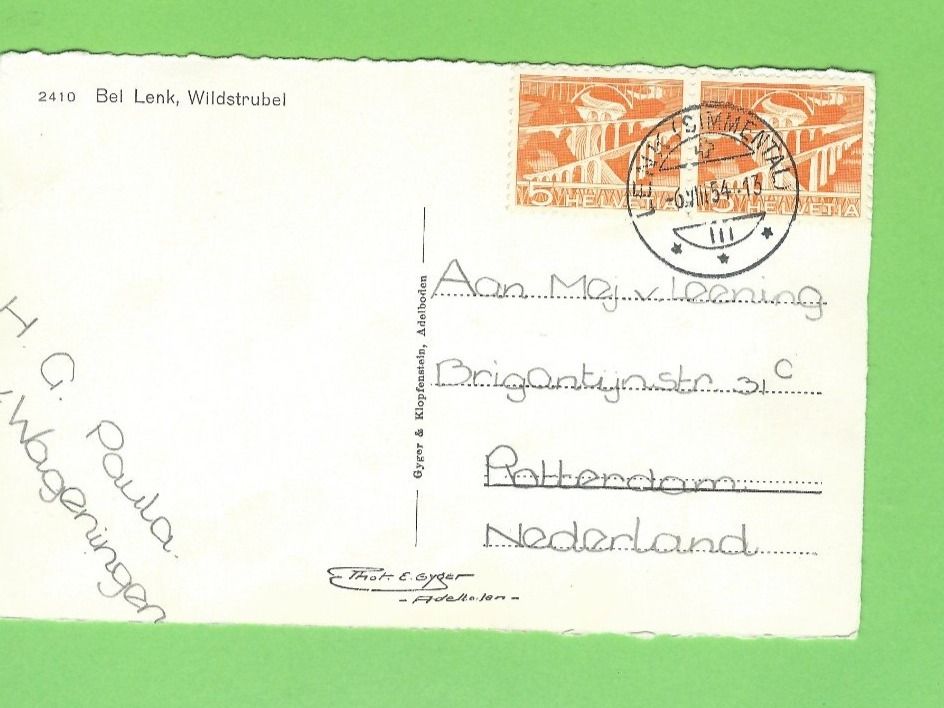 2410 Bei Lenk, Wildstrubel
5 HELVETIA
5 HELVETIA
LENK (SIMMENTAL)
-6.VIII.54.-13
Aan Mej. v. Leening
Brigantijnstr. 31 C
Rotterdam.
Nederland
H. G.
Paula.
Wageningen
Gyger & Klopfenstein, Adelboden
Phot. E. Gyger
- Adelboden -